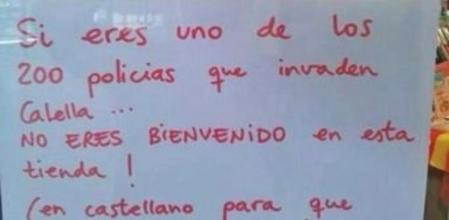 Si eres uno de los
200 policias que invaden
Calella ...
NO ERES BIENVENIDO en esta
tienda !
(en castellano para que